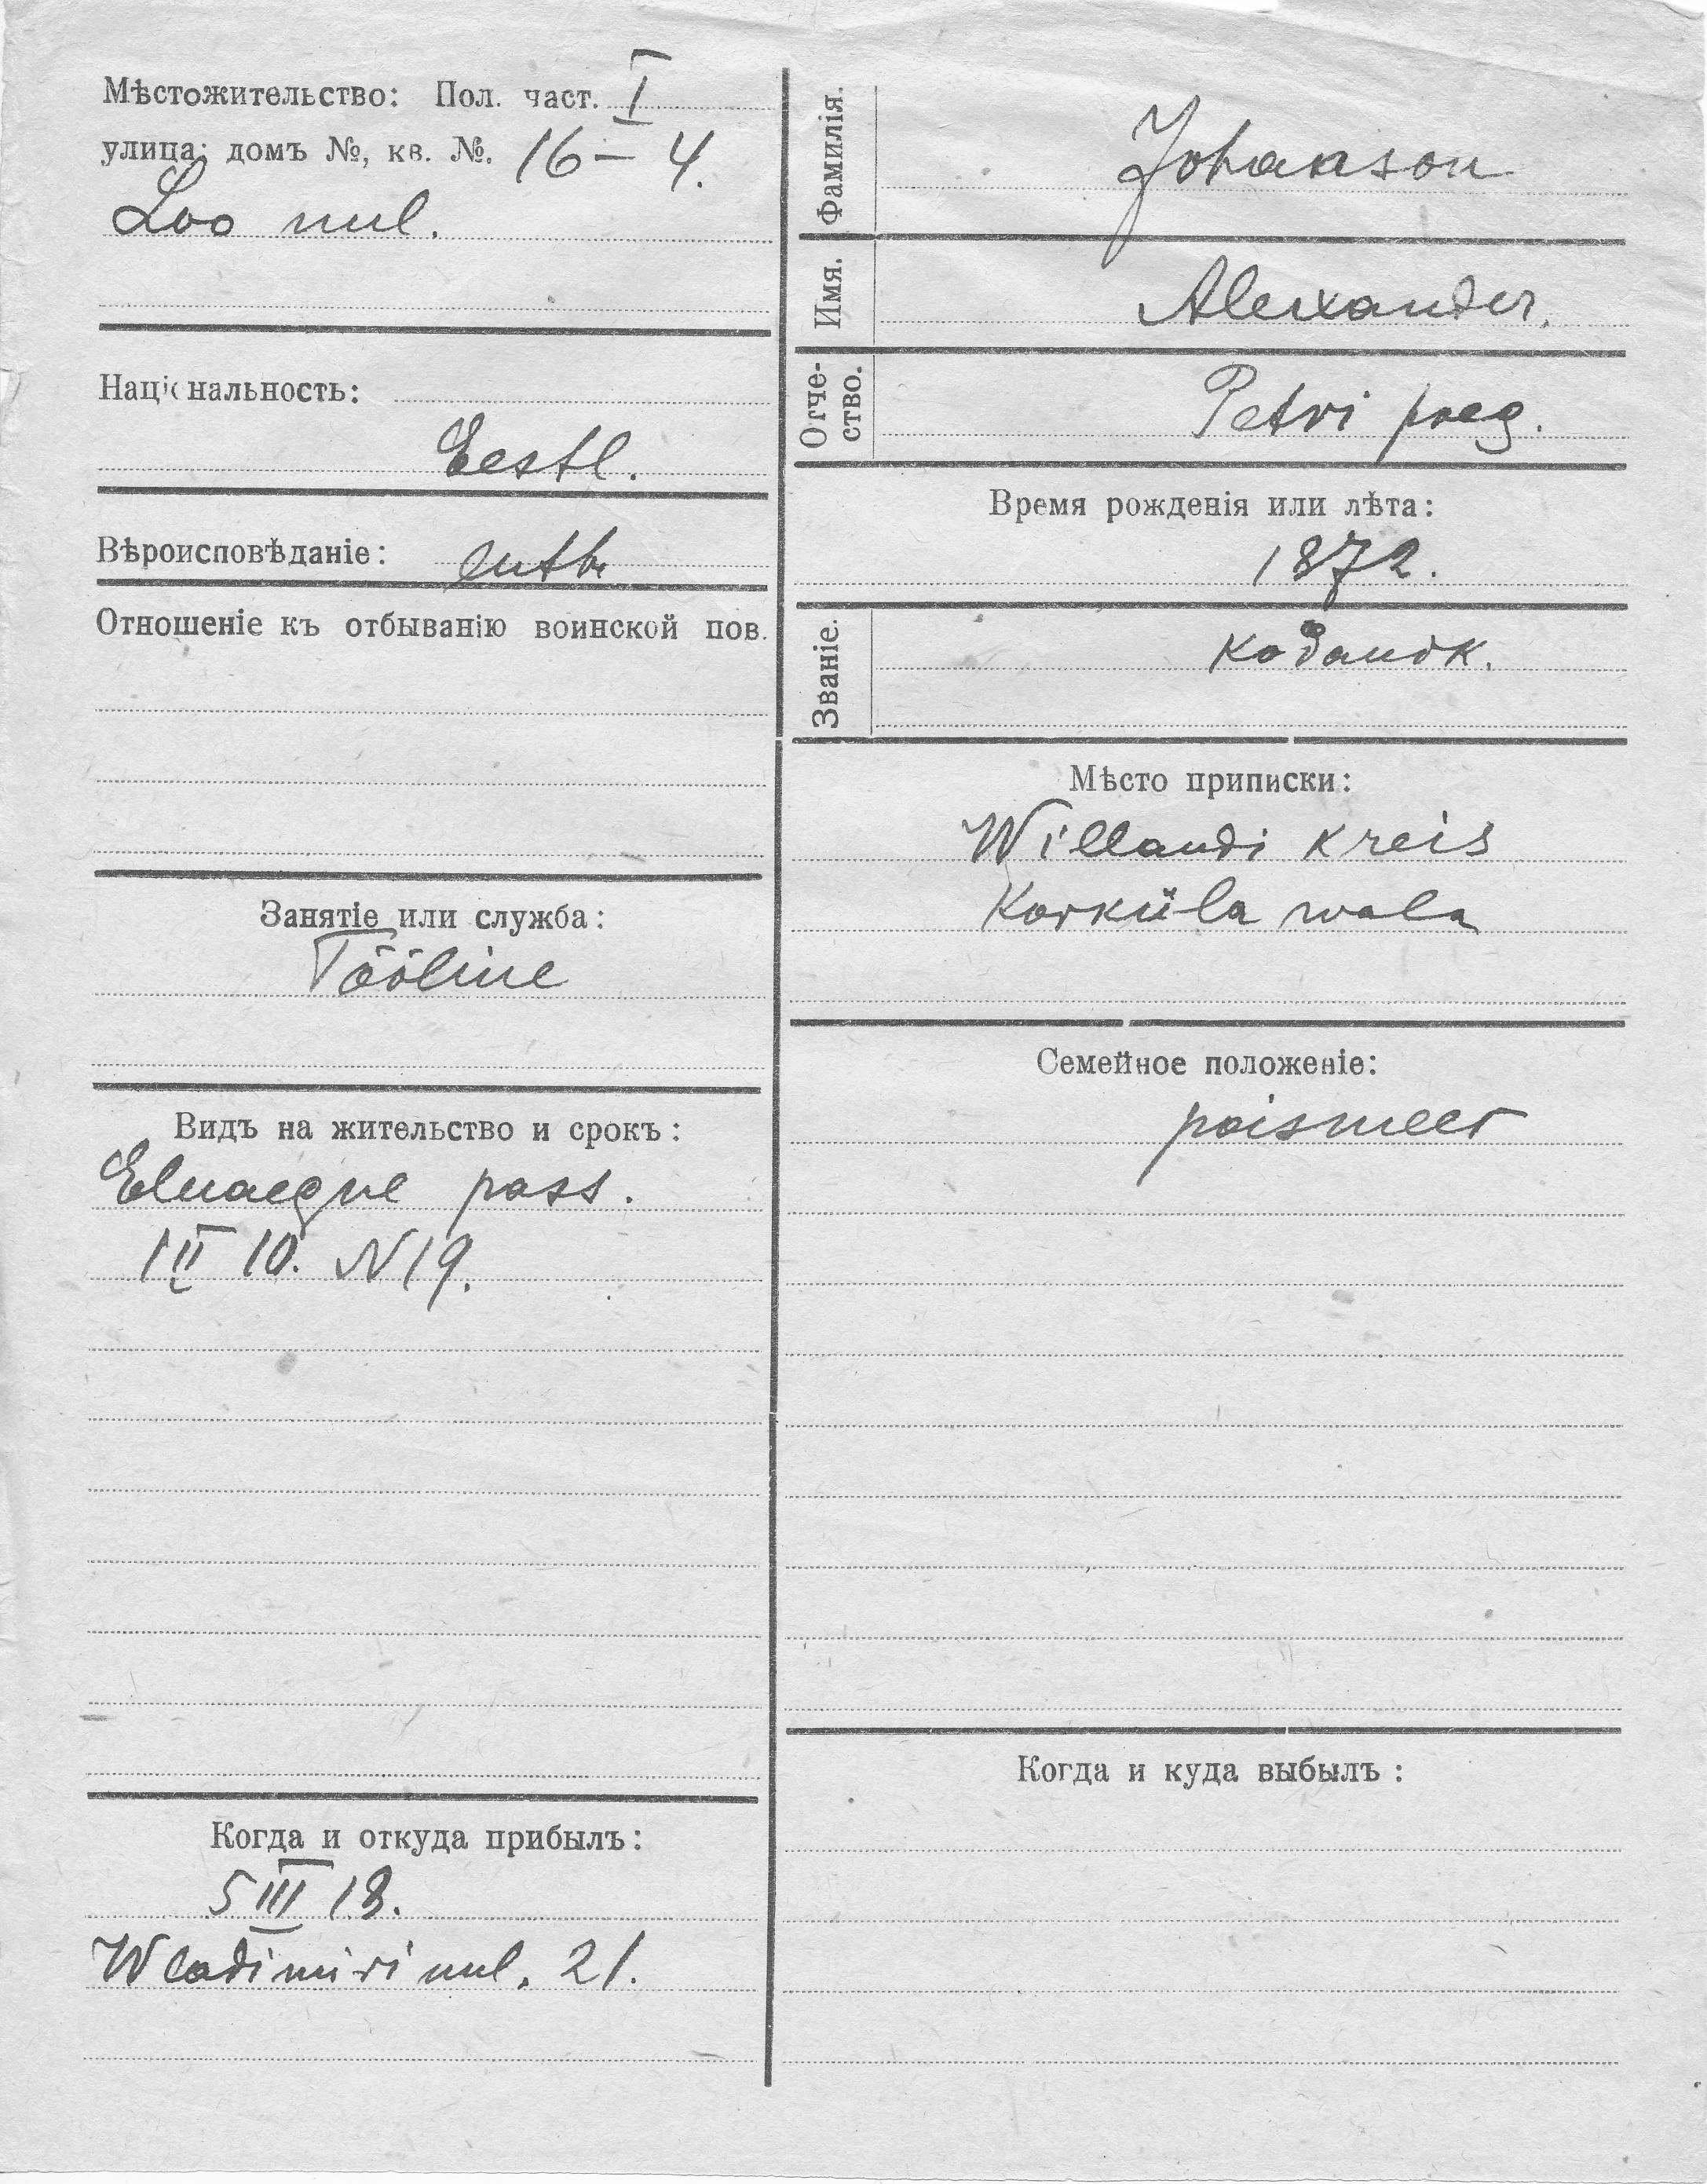 Мѣстожительство: Пол. част. I
улица; домъ №, кв. №. 16 – 4.
Loo uul.
Націнальность:
Eestl.
Вѣроисповѣданіе: luth.
Отношеніе къ отбыванію воинской пов.
Занятіе или служба:
Tööline
Видъ на жительство и срокъ:
Eluaegne pass.
1 II 10. N 19.
Когда и откуда прибылъ:
5 III 18.
Wladimiri uul. 21.
Фамилія. Johanson
Имя. Alexander.
Отче-
ство. Petri poeg.
Время рожденія или лѣта:
1872.
Званіе. Kodanik.
Мѣсто приписки:
Willandi Kreis
Korküla wala
Семейное положеніе:
poismees
Когда и куда выбылъ: